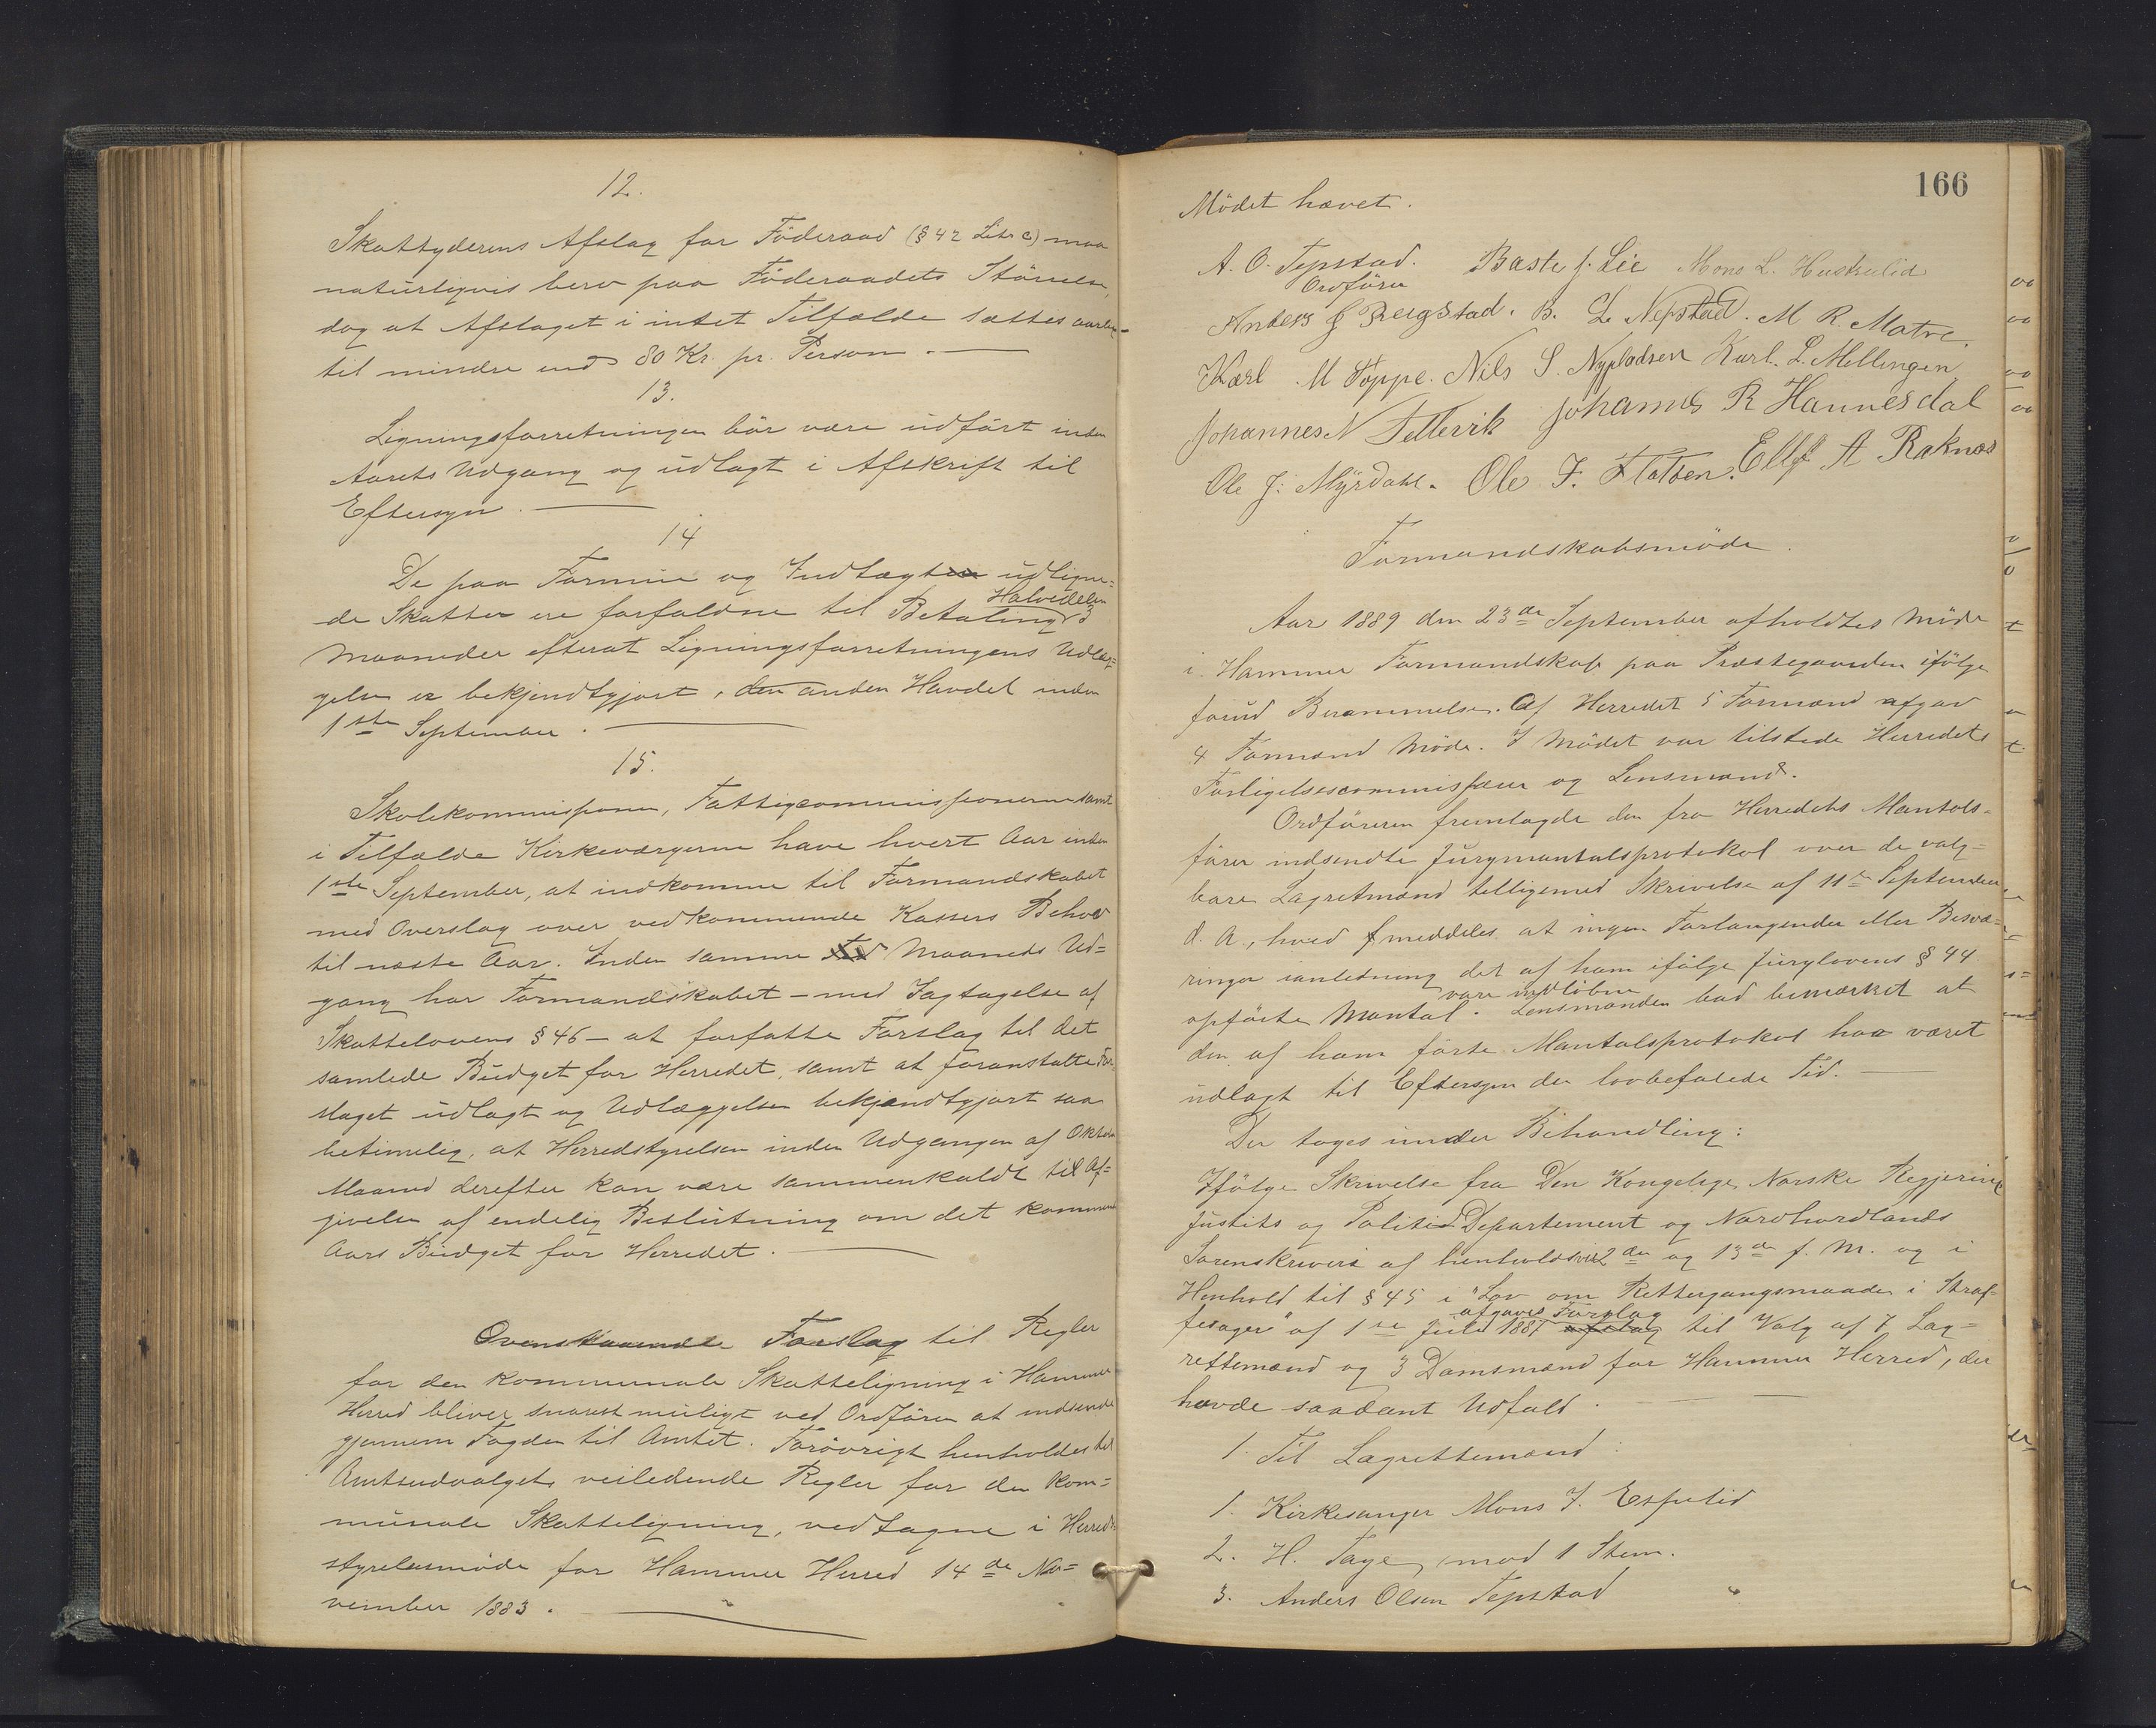 12.
Skattyderens Afslag for Föderaad (§ 42 Litr c) maa
naturligvis bero paa Föderaadets Störrelse,
dog at Afslaget i intet Tilfælde sættes
til mindre end 80 Kr. pr. Person.
13.
Ligningsforretningen bör være udfört inden
Aarets Udgang og udlagt i Afskrift til
Eftersyn.
14
De paa Formue og Indtægt udligne-
de Skatter ere forfaldne til Betaling Halvedelen 3
Maaneder efterat Ligningsforretningens Udlæg-
gelse er bekjendtgjort, den anden Havdel inden
1ste September.
15.
Skolekommissionen, Fattigcommissionerne samt
i Tilfælde Kirkeværgerne have hvert Aar inden
1ste September, at indkomme til Formandskabet
med Overslag over vedkommende Kassers Behov
til næste Aar. Inden samme Maaneds Ud-
gang har Formandskabet – med Iagtagelse af
Skattelovens § 46 – at forfatte Forslag til det
samlede Budget for Herredet, samt at foranstalte For
slaget udlagt og Udlæggelsen bekjendtgjort saa
betimelig, at Herredstyrelsen inden Udgangen af Oktober
Maaned derefter kan være sammenkaldt til Af-
givelse af endelig Beslutning om det kommende
Aars Budget for Herredet.
Ovenstaaende Forslag til Regler
for den kommunale Skatteligning i Hammer
Herred bliver snarest muligt ved Ordförer at indsende
gjennem Fogden til Amtet. Forövrigt henholdes til
Amtsudvalgets veiledende Regler for den kom-
munale Skatteligning, vedtagne i Herreds
styrelsesmöde for Hammer Herred 14de No-
vember 1883.
166
Mödet hævet.
A. O. Tepstad. Baste J. Lie Mons L. Hustrulid
Ordförer
Anders J Bergstad. B. L. Nepstad. M R. Matre.
Karl M Toppe. Nils S. Karl. L. Mellingen
Johannes N Tellevik Johannes R Hannesdal
Ole J: Myrdahl. Ole J. Flatöen. Ellf A Raknes
Formandskabsmöde.
Aar 1889 den 23de September afholdtes Möde
i Hammer Formandskab paa Præstegaarden ifölge
forud Berammelse. Af Herredet 5 Formænd afgav
4 Formænd Möde. I Mödet var tilstede Herredets
Forligelsescommissær og Lensmand.
Ordföreren fremlagde den fra Herredets Mantals-
förer indsendte Jurymantalsprotokol over de valg-
bare Lagretmænd tilligemed Skrivelse af 11te September
d. A., hved meddeles at ingen Forlangender eller Besvæ-
ringer ianledning det af ham ifölge Jurylovens § 44
opförte Mantal vare indlöbne. Lensmanden bad bemærket at
den af ham förte Mantalsprotokol har været
udlagt til Eftersyn den lovbefalede Tid.
Der toges under Behandling:
Ifölge Skrivelse fra Den Kongelige Norske Regjerings
Justits og Politi Departement og Nordhordlands
Sorenskriveri af henholdsvis 2den og 13de f. M. og i
Henhold til § 45 i "Lov om Rettergangsmaaden i Straf-
fesager" af 1ste Juli 1887 afgaves Forslag til Valg af 7 Lag-
rettemænd og 3 Domsmænd for Hammer Herred, der
havde saadant Udfald.
1. Til Lagrettemænd:
1. Kirkesanger Mons J. Espelid
2. H. Tage, mod 1 Stem.
3. Anders Olsen Tepstad